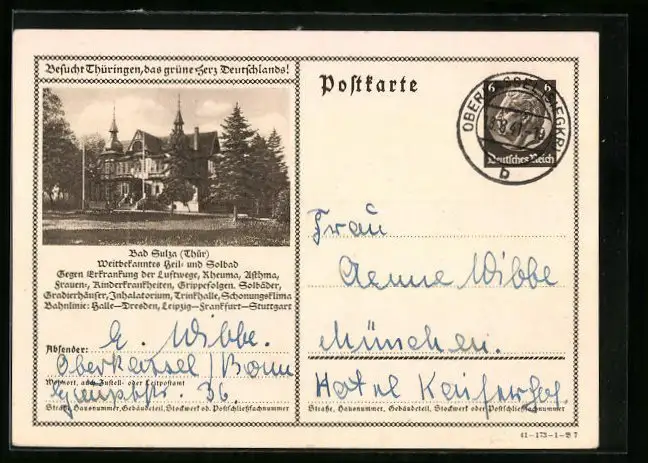 Besucht Thüringen, das grüne Herz Deutschlands!
Bad Sulza (Thür)
Weitbekanntes Heil- und Solbad
Gegen Erkrankung der Luftwege, Rheuma, Asthma,
Frauen-, Kinderkrankheiten, Grippefolgen. Solbäder,
Gradierhäuser, Inhalatorium, Trinkhalle, Schonungsklima
Bahnlinie: Halle—Dresden, Leipzig—Frankfurt—Stuttgart
Absender: E. Wibbe.
Oberkassel / Bonn
Wohnort, auch Zustell- oder Leitpostamt
36.
Straße, Hausnummer, Gebäudeteil, Stockwerk od. Postschließfachnummer
Postkarte
6 6
Deutsches Reich
OBERKASSEL (SIEGKR)
b
Frau
Aenne Wibbe
München.
Hotel Kaiserhof.
Straße, Hausnummer, Gebäudeteil, Stockwerk oder Postschließfachnummer
41-173-1-B7